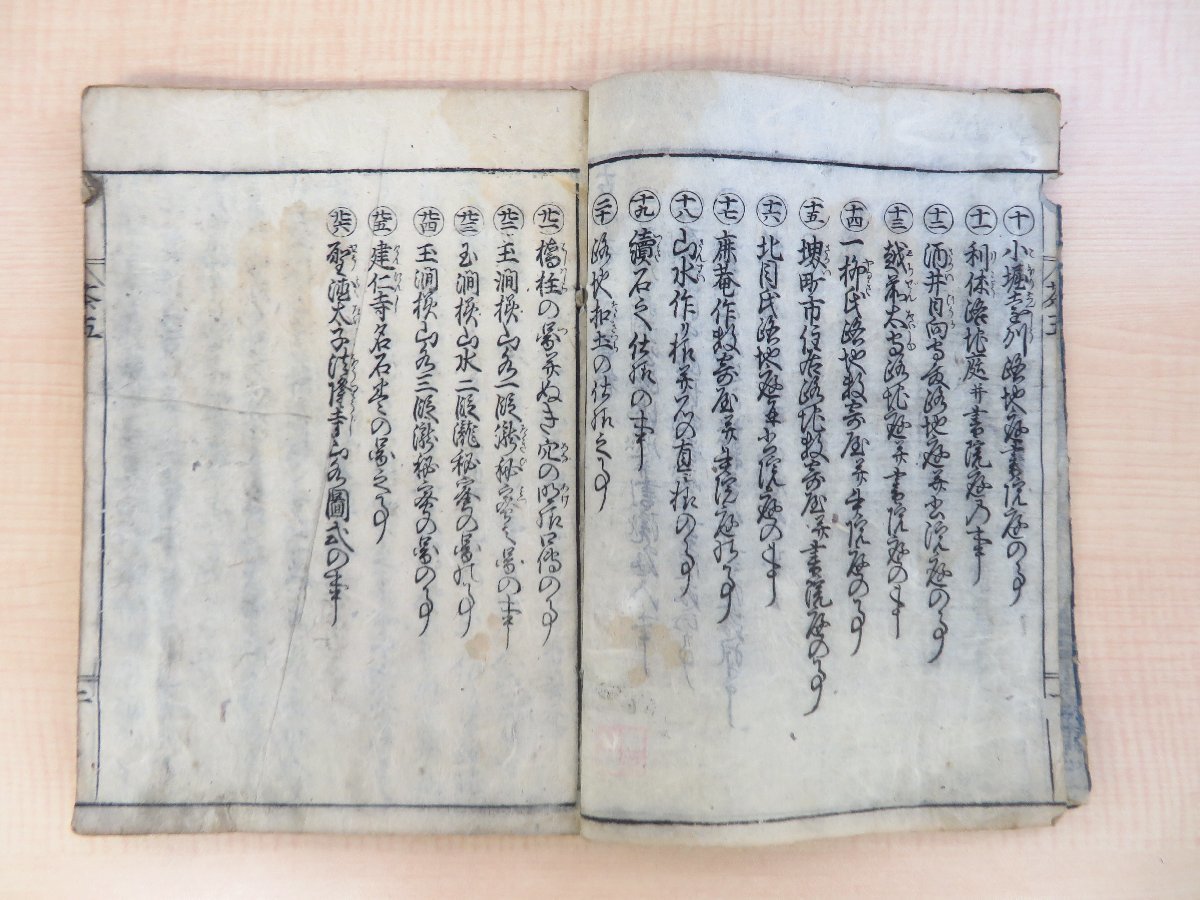 十 小堀遠州路地庭書院庭の事
十一 利休路地庭并書院庭乃事
十二 酒井日向守殿路地庭并書院庭の事
十三 越前太守路地庭并書院庭の事
十四 一柳氏路地数寄屋并書院庭の事
十五 堺町市住居路地数寄屋并書院庭の事
十六 北月氏路地庭并書院庭の事
十七 麻菴作数寄屋并書院庭の事
十八 山水作り様并石の直し様の事
十九 續石之仕様の事
二十 路地和土の仕様之事
廿一 橋柱の図并ぬき穴の明様口傳の事
廿二 玉澗様山水一段瀧秘密之図の事
廿三 玉澗様山水二段瀧秘密の図の事
廿四 玉澗様山水三段瀧秘密の図の事
廿五 建仁寺名石生の図之事
廿六 聖徳太子法隆寺山水圖式の事
巻五
二